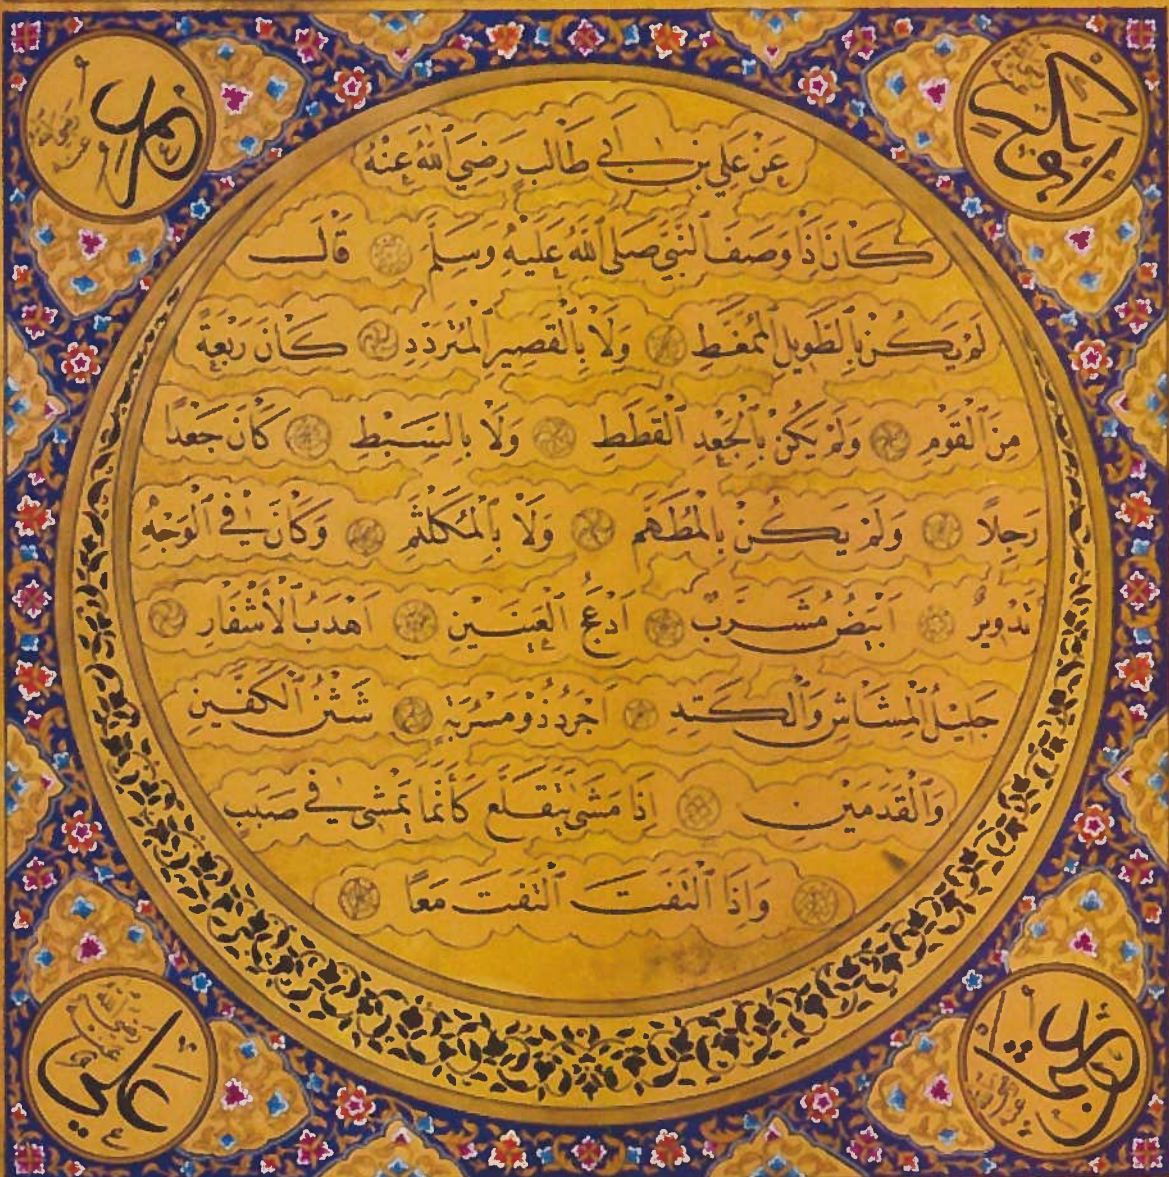 ابي بكر
عمر
عَنْ عَلِيِّ بْنِ اَبِي طَالِبٍ رَضِيَ اللّٰهُ عَنْهُ
كَانَ اِذَا وَصَفَ النَّبِيَّ صَلَّى اللّٰهُ عَلَيْهِ وَسَلَّمَ قَالَ
لَمْ يَكُنْ بِالطَّوِيلِ الْمُمَغَّطِ وَلَا بِالْقَصِيرِ الْمُتَرَدِّدِ كَانَ رَبْعَةً
مِنَ الْقَوْمِ وَلَمْ يَكُنْ بِالْجَعْدِ الْقَطَطِ وَلَا بِالسَّبِطِ كَانَ جَعْدًا
رَجِلًا وَلَمْ يَكُنْ بِالْمُطَهَّمِ وَلَا بِالْمُكَلْثَمِ وَكَانَ فِي الْوَجْهِ
تَدْوِيرٌ اَبْيَضُ مُشْرَبٌ اَدْعَجُ الْعَيْنَيْنِ اَهْدَبُ الْاَشْفَارِ
جَلِيلُ الْمُشَاشِ وَالْكَتَدِ اَجْرَدُ ذُو مَسْرُبَةٍ شَثْنُ الْكَفَّيْنِ
وَالْقَدَمَيْنِ اِذَا مَشَى يَتَقَلَّعُ كَأَنَّمَا يَمْشِي فِي صَبَبٍ
وَاِذَا الْتَفَتَ الْتَفَتَ مَعًا
عثمان
علي